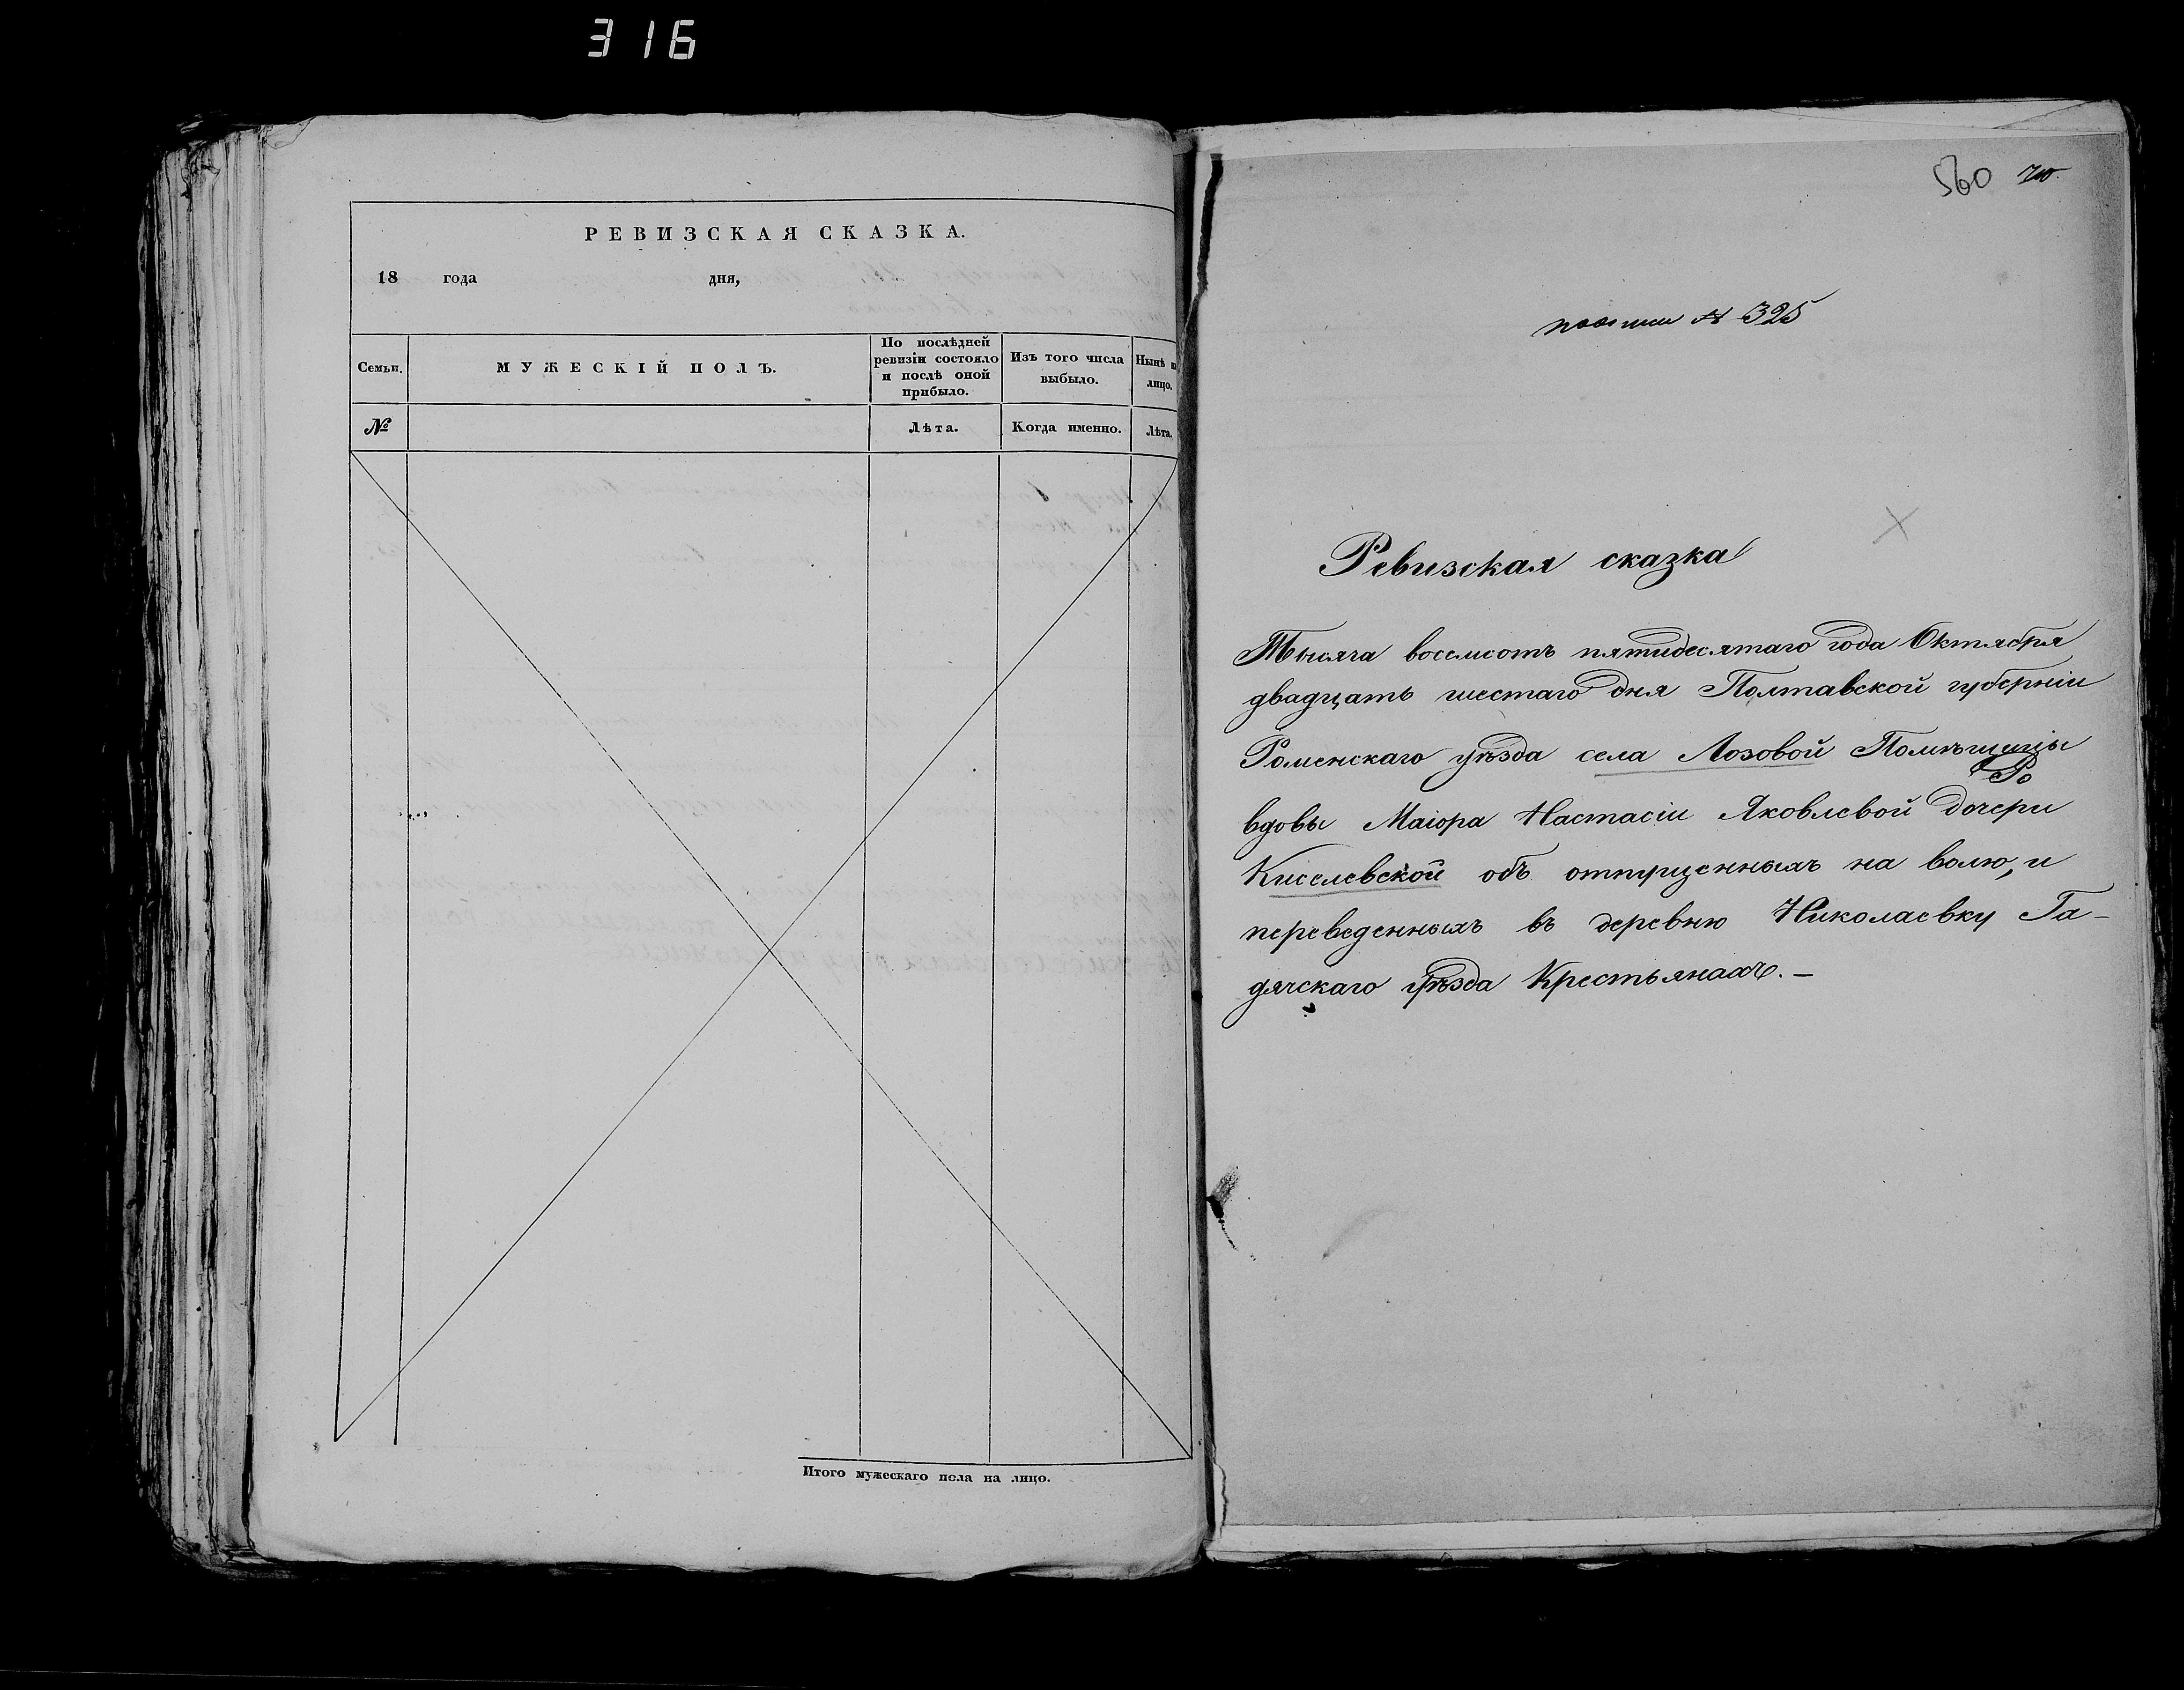 316
РЕВИЗСКАЯ СКАЗКА.
18 года дня,
Семьи. МУЖЕСКІЙ ПОЛЪ. По послѣдней ревизіи состояло и послѣ оной прибыло. Изъ того числа выбыло. Нынѣ на лицо.
№ Лѣта. Когда именно. Лѣта.
Итого мужескаго пола на лицо.
560
№ 325
Ревизская сказка
Тысяча восемсотъ пятидесятаго года Октября
двадцать шестаго дня Полтавской губерніи
Роменскаго уѣзда села Лозовой Помѣщицы
вдовы Маіора Настасіи Яковлевой дочери
Киселевской объ отпущенныхъ на волю, и
переведенныхъ въ деревню Николаевку Га-
дячскаго уѣзда Крестьянахъ.–